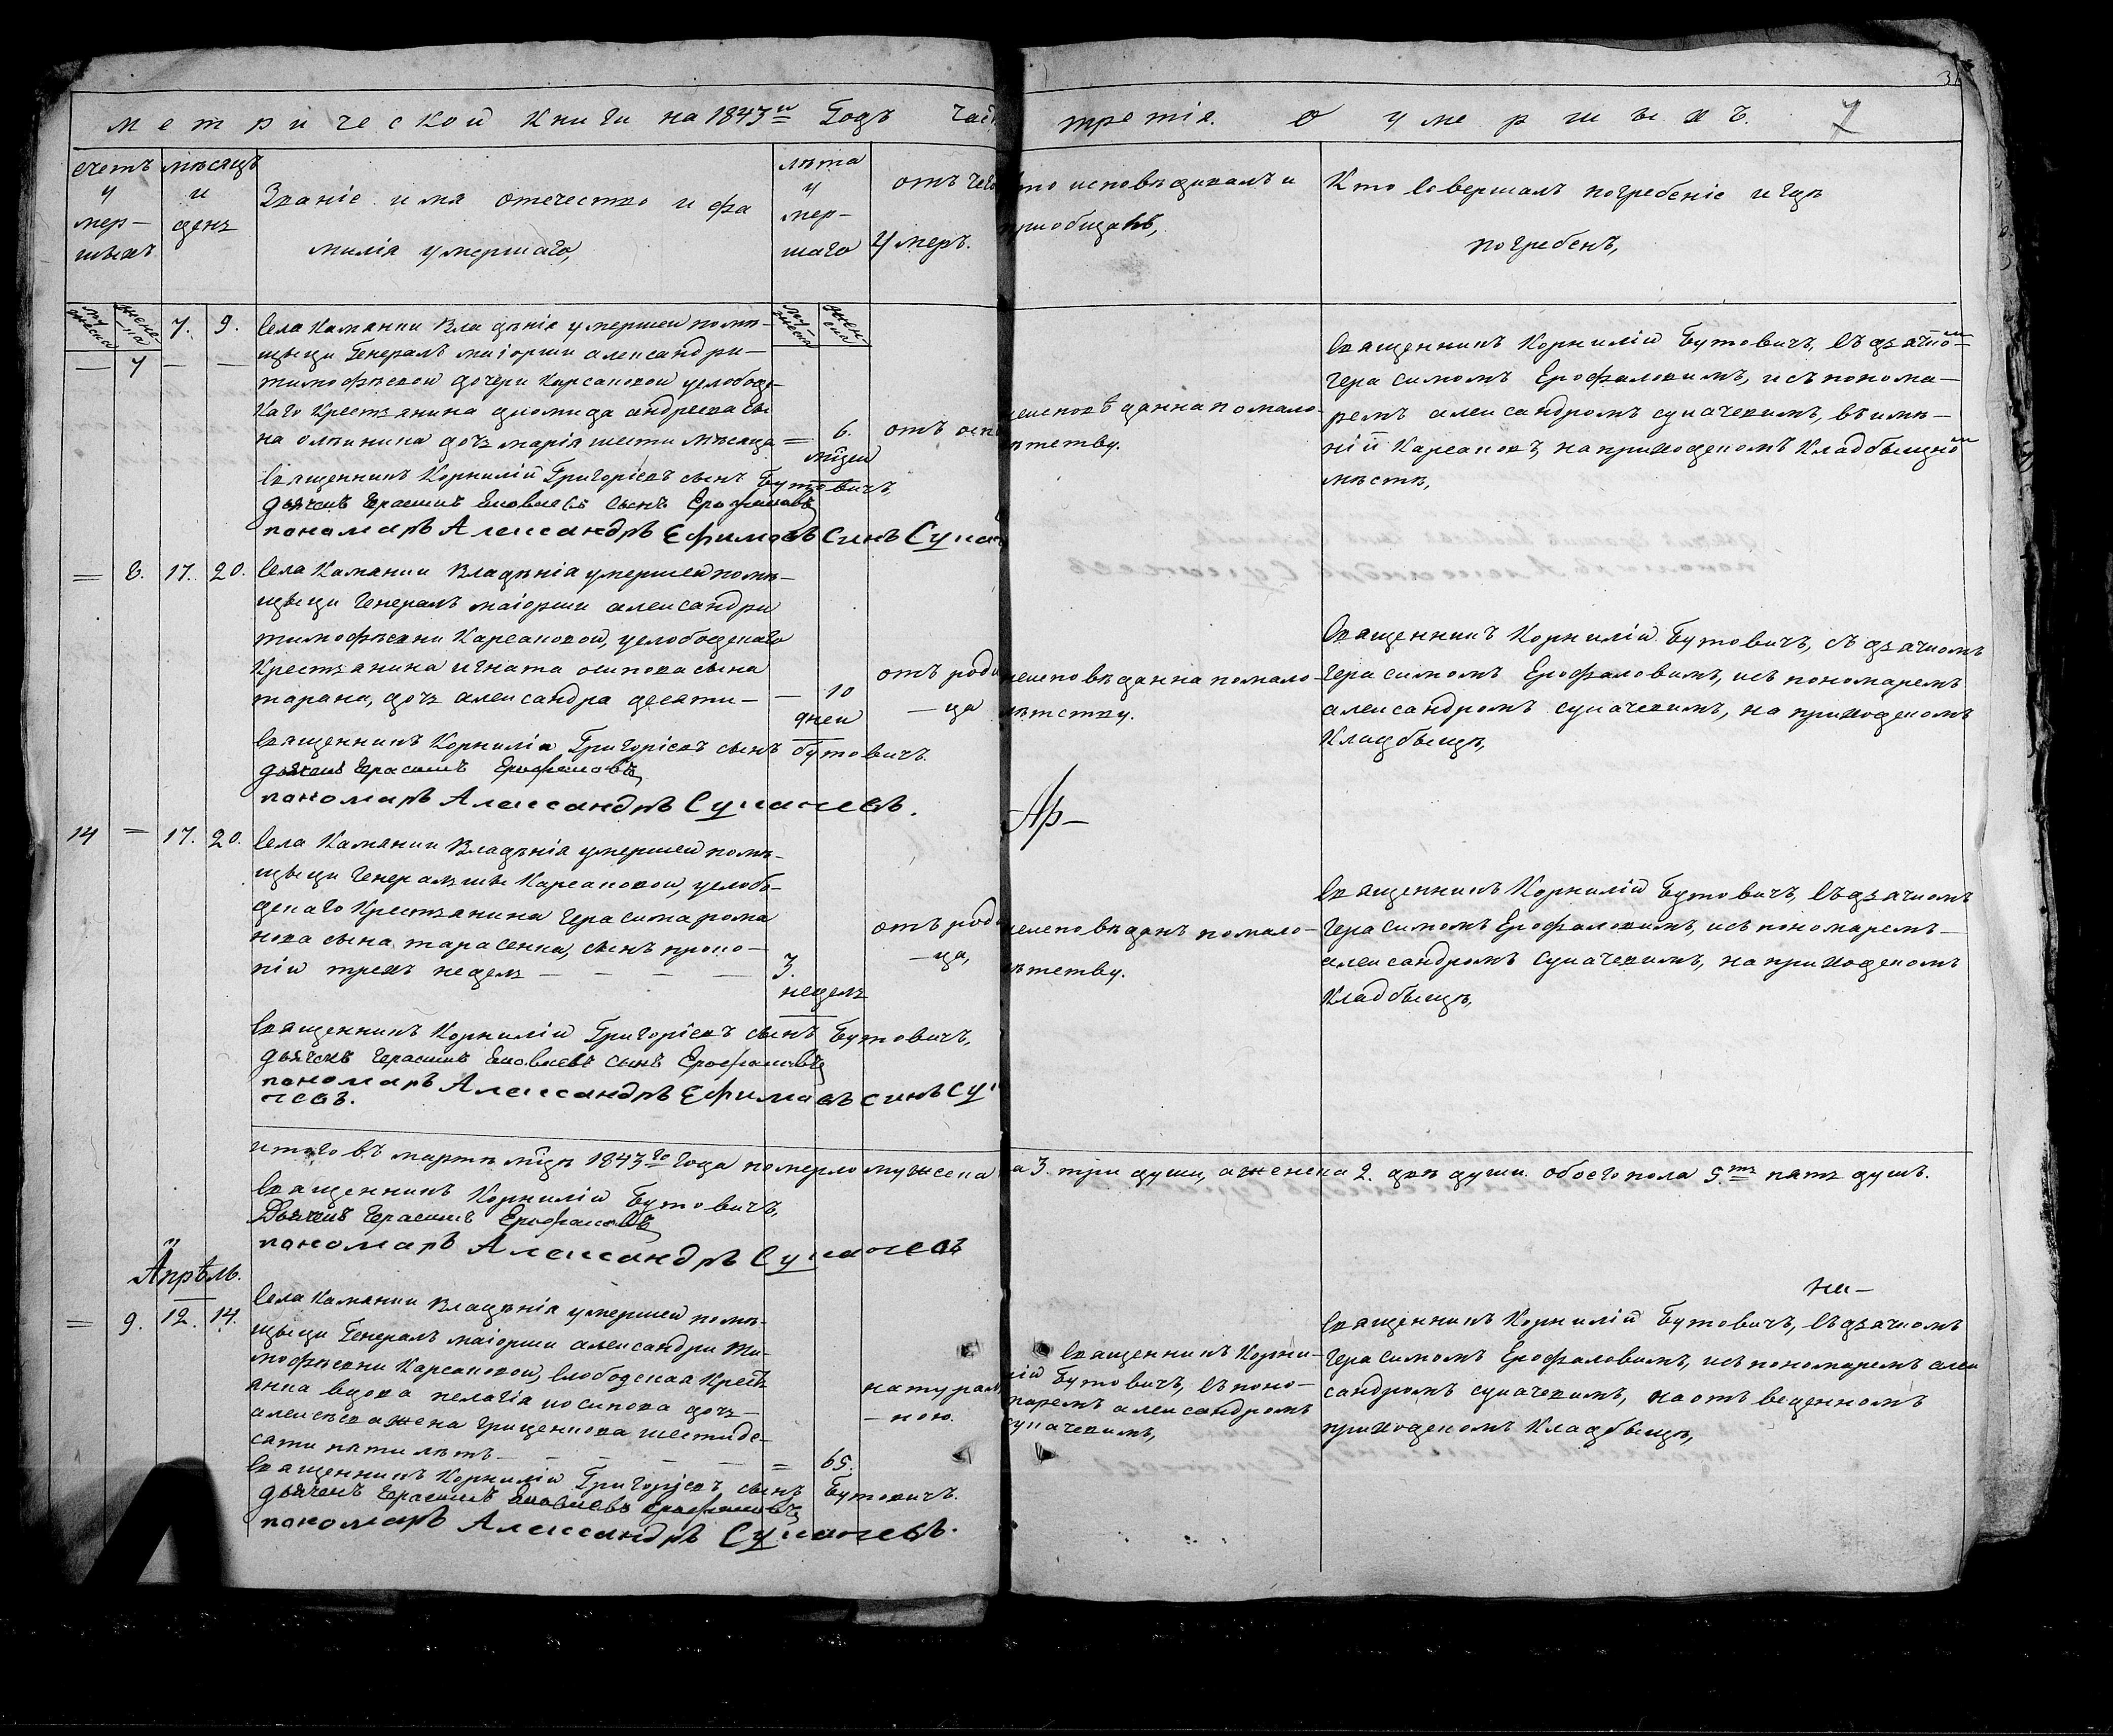 31
Метрической книги на 1843й Годъ Част третія. О умершихъ. 7
счетъ умершихъ
мѣсяцъ и день
Званіе имя отечество и фа
милія умершаго,
лѣта умершаго
отъ чего
умеръ.
кто исповѣдивалъ и
приобщалъ,
Кто Совершалъ погребеніе и гдѣ
погребенъ,
мужеска
женска
мужеска
женска
— 7 — —
7. 9. Села Каманки Владѣнія умершей помѣ-
щыци Генералъ маіорши александри-
тимофѣевой дочери Карсаковой услобод-
каго Крестьянина диомида андреева сы
на олѣйника дочь марія шести мѣсяца = 6. мцей
отъ осп
неисповѣданна по мало-
лѣтству.
Священникъ Корнилій Бутовичъ, съ дьячком
Герасимомъ Ерофаловимъ, и съ понома-
ремъ александромъ сукачевимъ, въ имѣ-
ніи Карсаковъ, на приходскомъ Кладбыщном
мѣстѣ,
Священникъ Корнилій Григоріевъ сынъ Бутовичъ,
дьячекъ Герасимъ Яковлевъ сынъ Ерофаловъ
пономаръ Александръ Ефимовъ синъ Сукач
= 8. 17. 20. Села Каманки Владѣнія умершей помѣ-
щыци Генералъ маіорши александри
тимофѣевни Карсаковой, услободскаго
Крестьянина игната осипова сына
тарана, дочь александра десяти — — 10 дней
отъ роди
— ца
неисповѣданна по мало-
лѣтству.
Священникъ Корнилій Бутовичъ, съ дьячкомъ
Герасимомъ Ерофаловимъ, и съ пономаремъ
александромъ сукачевимъ, на приходскомъ
Кладбыщѣ,
Священникъ Корнилій Григоріевъ сынъ бутовичъ.
дьячекъ Герасимъ Ерофаловъ
пономаръ Александръ Сукачевъ.
14 = 17. 20. Села Каманки Владѣнія умершей помѣ-
щыци Генеральши Карсаковой, услобо-
дскаго Крестьянина Герасима рома
нова сына тарасенка, сынъ проко-
пій трехъ недель — — — — 3. недель
отъ роди
— ца,
неисповѣданъ по мало-
лѣтству.
Священникъ Корнилій Бутовичъ, съ дьячкомъ
Герасимомъ Ерофаловимъ, и съ пономаремъ —
александромъ сукачевимъ, на приходскомъ
Кладбыщѣ,
Священникъ Корнилій Григоріевъ сынъ Бутовичъ,
дьячекъ Герасимъ Яковлевъ сынъ Ерофаловъ
пономаръ Александръ Ефимовъ синъ Сук
чевъ.
итого въ мартѣ мцѣ 1843го года померло мужеска 3. три души, а женска 2. двѣ души. обоего пола 5.ть пять душъ.
Священникъ Корнилій Бутовичъ,
Дьячекъ Герасимъ Ерофаловъ
пономаръ Александръ Сукачевъ
Апрѣль.
= 9. 12. 14. Села Каманки Владѣнія умершей помѣ-
щыци Генералъ маіорши александри ти-
мофѣевни Карсаковой, слободская Крестья
янка вдова пелагія иосипова дочь —
алексѣева жена грищенкова шестиде-
сяти пяти лѣтъ — — — — = 65.
натурал
— ною.
Священникъ Корни-
лій Бутовичъ, съ поно-
маремъ александромъ
сукачевимъ,
на —
Священникъ Корнилій Бутовичъ, съ дьячкомъ
Герасимомъ Ерофаловимъ, и съ пономаремъ алек
сандромъ сукачевимъ, на отъ веденномъ
приходскомъ Кладбыщѣ,
Священникъ Корнилій Григоріевъ сынъ Бутовичъ.
дьячекъ Герасимъ Яковлевъ Ерофаловъ
пономаръ Александръ Сукачевъ.